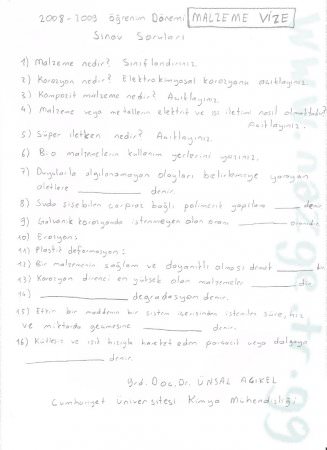 2008-2009 öğrenim Dönemi MALZEME VİZE
Sınav Soruları
1) Malzeme nedir? Sınıflandırınız.
2) Korozyon nedir? Elektrokimyasal korozyonu açıklayınız.
3) Kompozit malzeme nedir? Açıklayınız.
4) Malzeme veya metallerin elektrik ve ısı iletimi nasıl olmaktadır?
Açıklayınız.
5) Süper iletken nedir? Açıklayınız.
6) Bio malzemelerin kullanım yerlerini yazınız.
7) Duyularla algılanamayan olayları belirlemeye yarayan
aletlere ________ denir.
8) Suda şişebilen çapraz bağlı polimerik yapılara ____ denir
9) Galvanik korozyonda istenmeyen alan oranı ________ oranıdır.
10) Erozyon:
11) Plastik deformasyon:
12) Bir malzemenin sağlam ve dayanıklı olması demek ____
13) Korozyon direnci en yüksek olan malzemeler ____ dir.
14) ________ degradasyon denir.
15) Etkin bir maddenin bir sistem içerisinden istenilen süre, hız,
ve miktarda geçmesine ________ denir.
16) Kütlesiz ve ışık hızıyla hareket eden parçacık veya dalgaya
________ denir.
Yrd. Doç. Dr. ÜNSAL AÇIKEL
Cumhuriyet Üniversitesi Kimya Mühendisliği